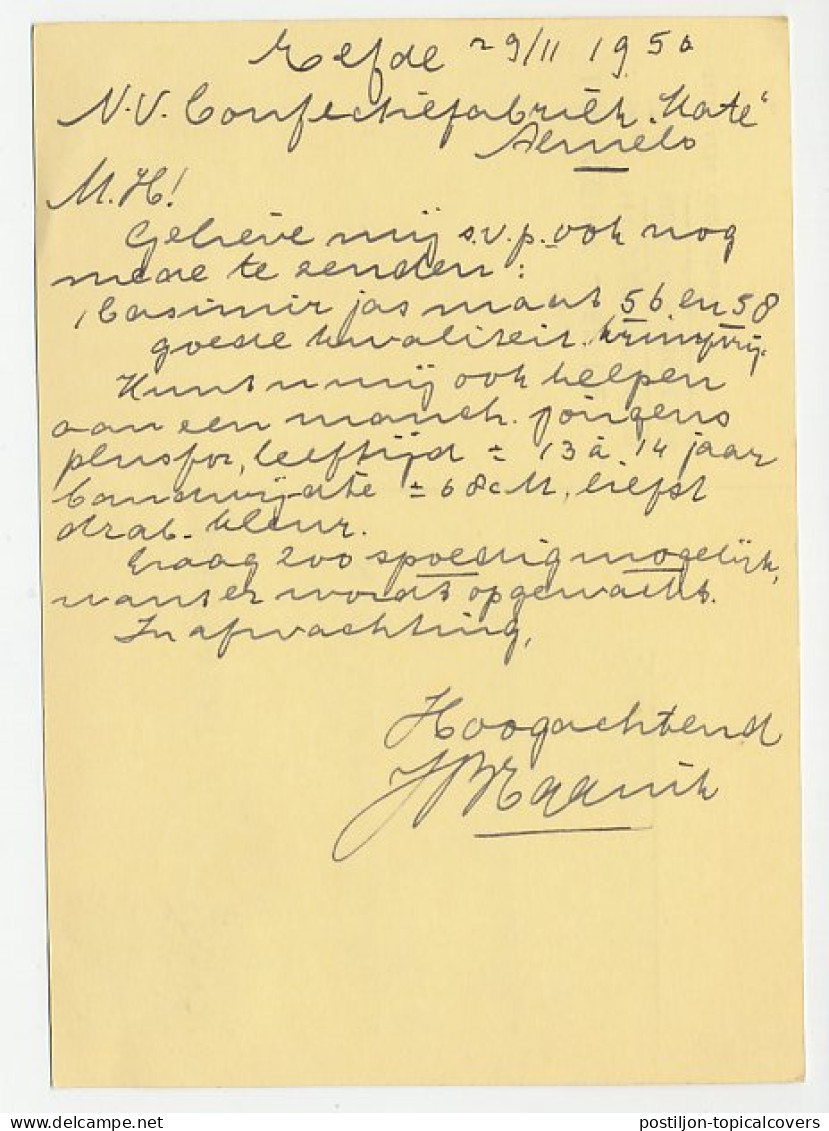 Eefde 29/11 1950
N.V. Confectiefabriek "Kate"
Almelo
M.H!
Gelieve mij s.v.p. ook nog
mede te zenden:
1 Casimir jas maat 56 en 58
goede kwaliteit. krimpvrij.
Kunt u mij ook helpen
aan een manch. jongens
plusfor, leeftijd ± 13 à 14 jaar
bandwijdte ± 68 cM, liefst
drab. kleur.
Graag zoo spoedig mogelijk,
want er wordt op gewacht.
In afwachting,
Hoogachtend
postiljon-topicalcovers